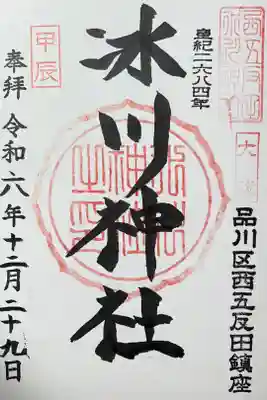 皇紀二六八四年
品川区西五反田鎮座
氷川神社
甲辰
奉拝 令和六年十二月二十九日